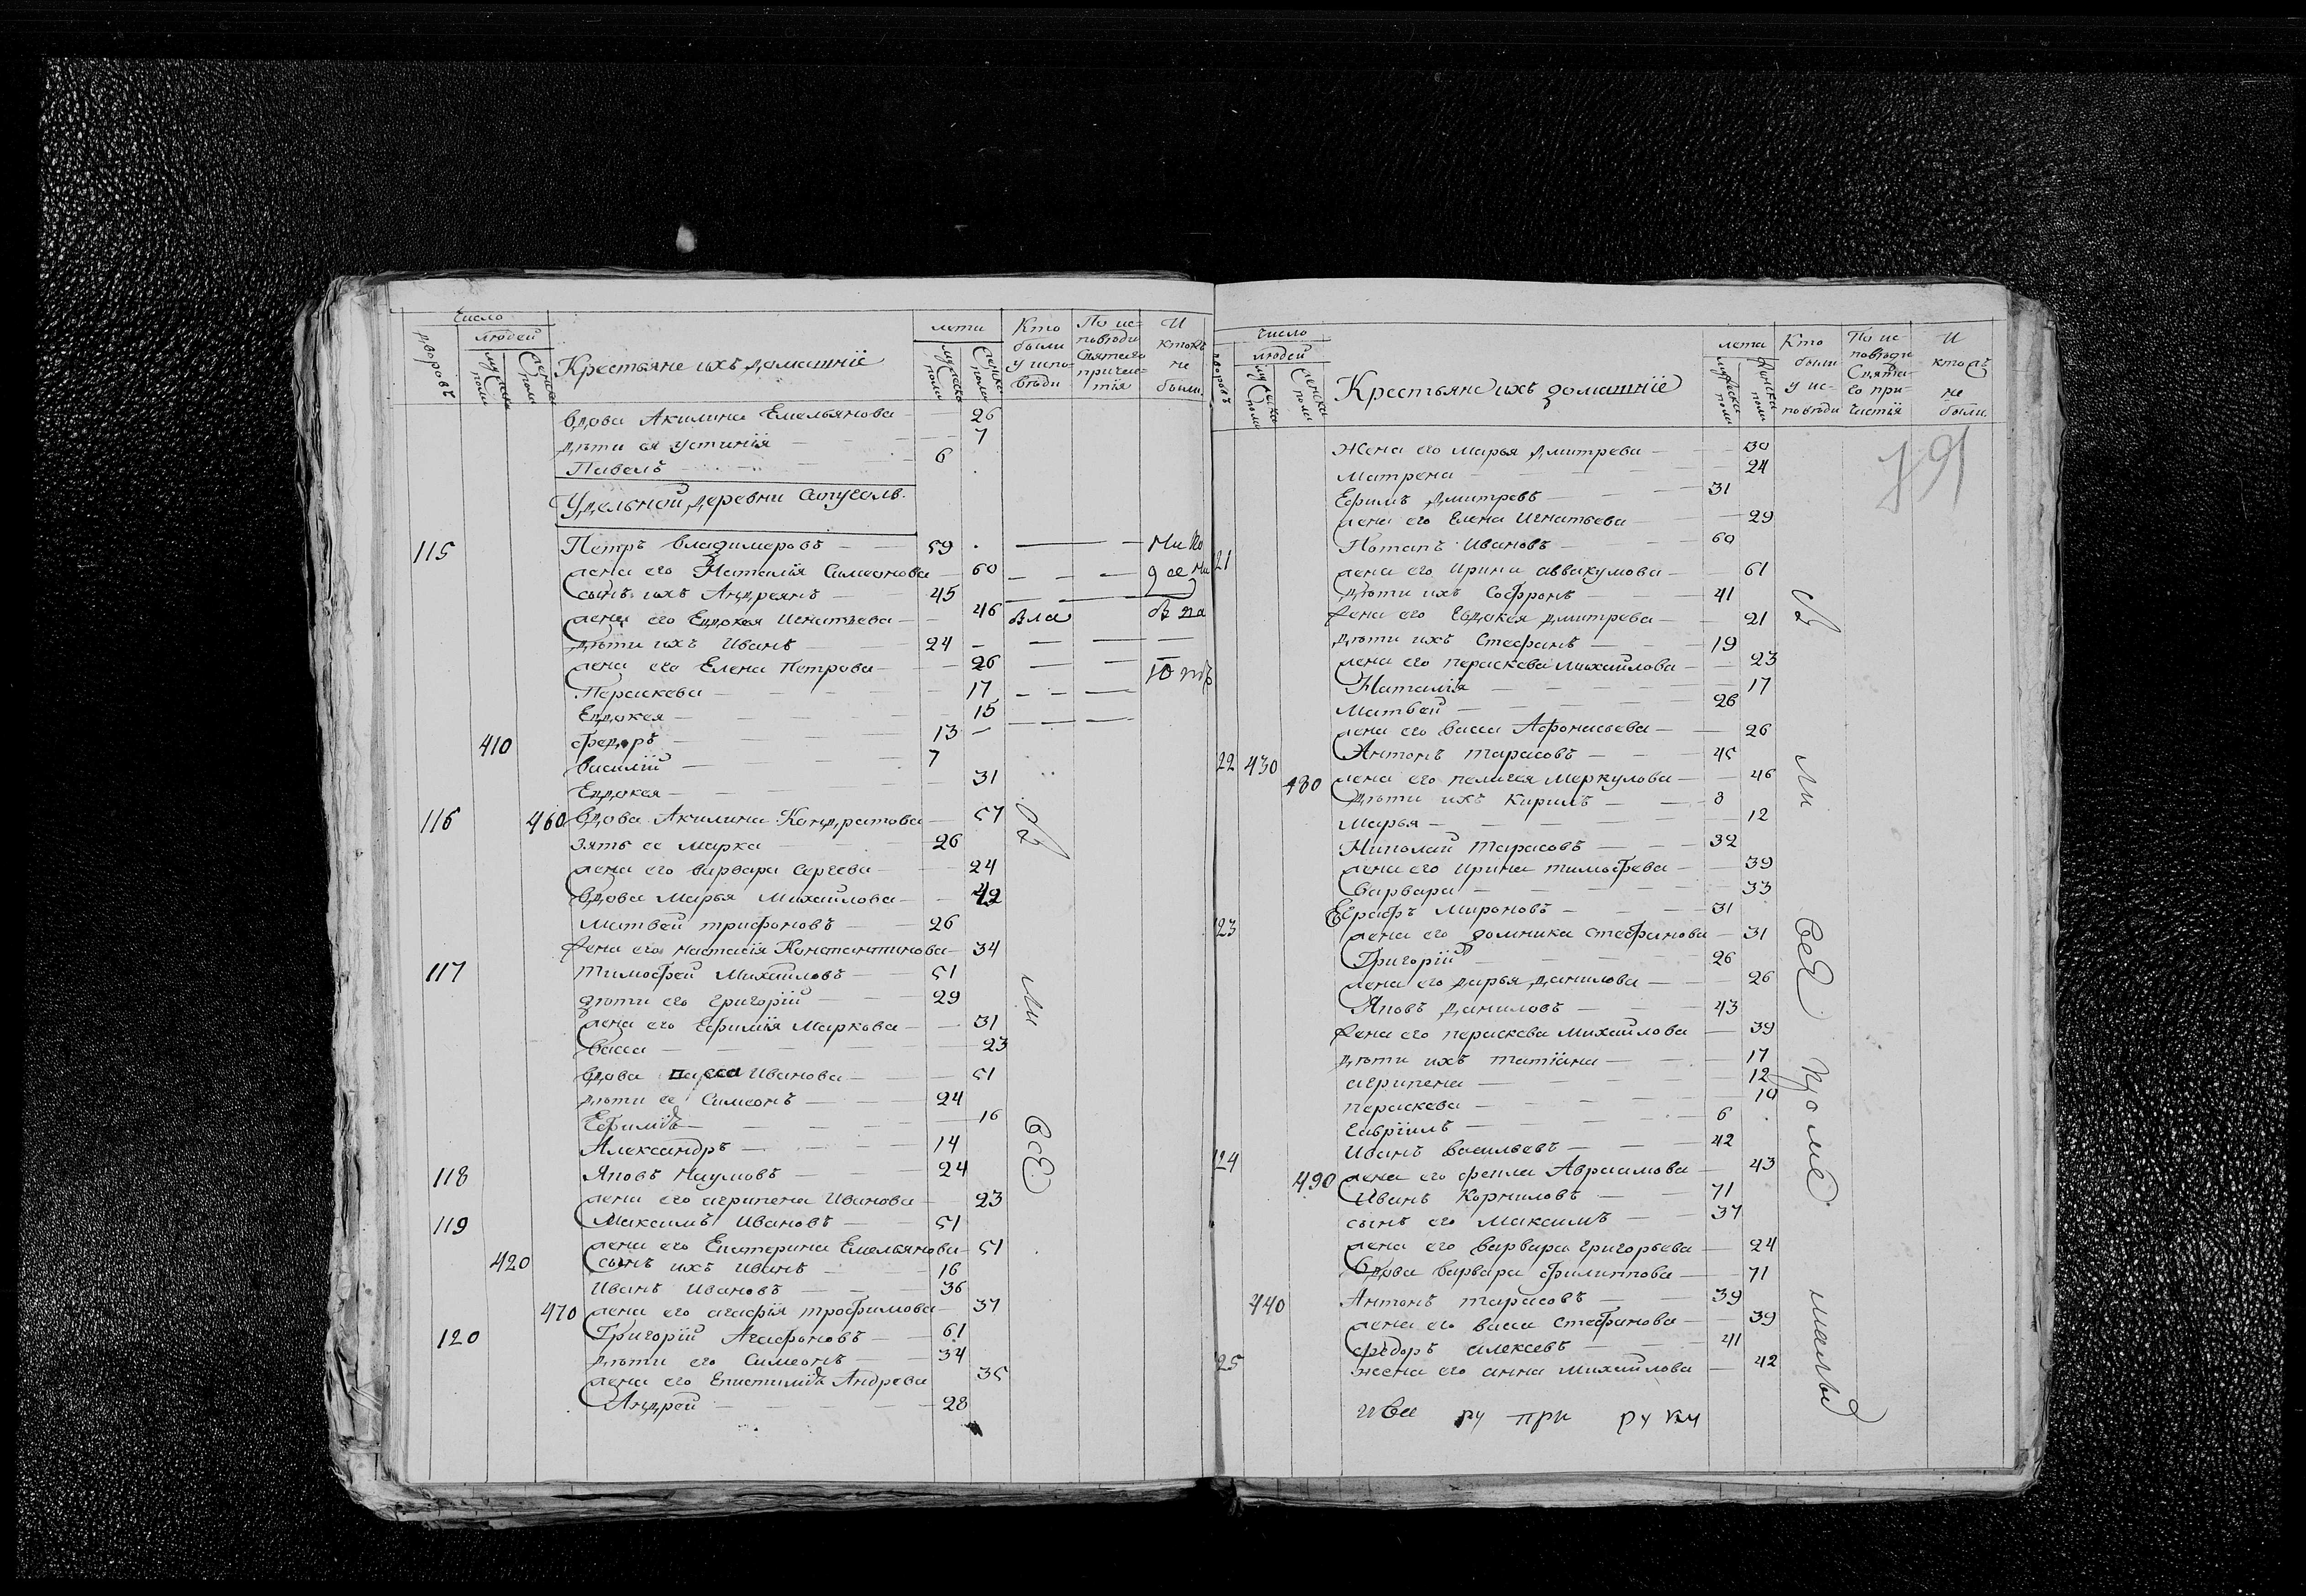 Число
людей
дворовъ
мужеска полу
женска полу
Крестьяне ихъ домашніе
лета
мужеска полу
женска полу
Кто были у испо-веди
По ис-поведи Святаго причас-тія
И ктожъ не были
вдова Акилина Емельянова 26
дѣти ея Устинія 7
Павелъ 6
Удельной деревни
115 Петръ Владимеровъ 59
жена его Наталія Симеонова 60
сынъ ихъ Андреянъ 45
жена его Евдокея Игнатьева 46
дѣти ихъ Иванъ 24
жена его Елена Петрова 26
Пераскева 17
Евдокея 15
Федоръ 13
410 Василій 7
Евдокея 31
116 460 вдова Акилина Кондратова 57
зять ее Марка 26
жена его Варвара Сергева 24
вдова Марья Михайлова 42
Матвей Трифоновъ 26
жена его Настасія Константинова 34
117 Тимофей Михайловъ 51
дѣти его Григорій 29
жена его Ефимія Маркова 31
Васса 23
вдова Иванова 51
дѣти ее Симеонъ 24
Ефимія 16
Александръ 14
118 Яковъ Наумовъ 24
жена его Агрипена Иванова 23
119 Максимъ Ивановъ 51
жена его Екатерина Емельянова 51
420 сынъ ихъ Иванъ 16
Иванъ Ивановъ 36
470 жена его Агафія Трофимова 37
120 Григорій Агафоновъ 61
дѣти его Симеонъ 34
жена его Епистимія Андрева 35
Андрей 28
Число
людей
дворовъ
мужеска полу
женска полу
Крестьяне ихъ домашніе
лета
мужеска полу
женска полу
Кто были у ис-поведи
По ис-поведи Свята-го при-частія
И ктожъ не были
Жена его Марья Дмитрева 30
Матрена 24
Ефимъ Дмитревъ 31
жена его Елена Игнатьева 29
21 Потапъ Ивановъ 60
жена его Ирина Аввакумова 61
дѣти ихъ Софронъ 41
жена его Евдокея Дмитрева 21
дѣти ихъ Стефанъ 19
жена его Пераскева Михайлова 23
Наталія 17
Матвей 26
жена его Васса Афонасьева 26
22 430 Антонъ Тарасовъ 45
480 жена его Пелагея Меркулова 46
дѣти ихъ Кирилъ 8
Марья 12
Николай Тарасовъ 32
жена его Ирина Тимофева 39
Варвара 33
23 Еграфъ Мироновъ 31
жена его Домника Стефанова 31
Григорій 26
жена его Дарья Данилова 26
Яковъ Даниловъ 43
жена его Пераскева Михайлова 39
дѣти ихъ Татіана 17
Агрипена 12
Пераскева 10
Гавріилъ 6
24 Иванъ Васильевъ 42
490 жена его Фекла Авраамова 43
Иванъ Корниловъ 71
сынъ его Максимъ 37
жена его Варвара Григорьева 24
вдова Варвара Филиппова 71
440 Антонъ Тарасовъ 39
жена его Васса Стефанова 39
25 Федоръ Алексевъ 41
жена его Анна Михайлова 42